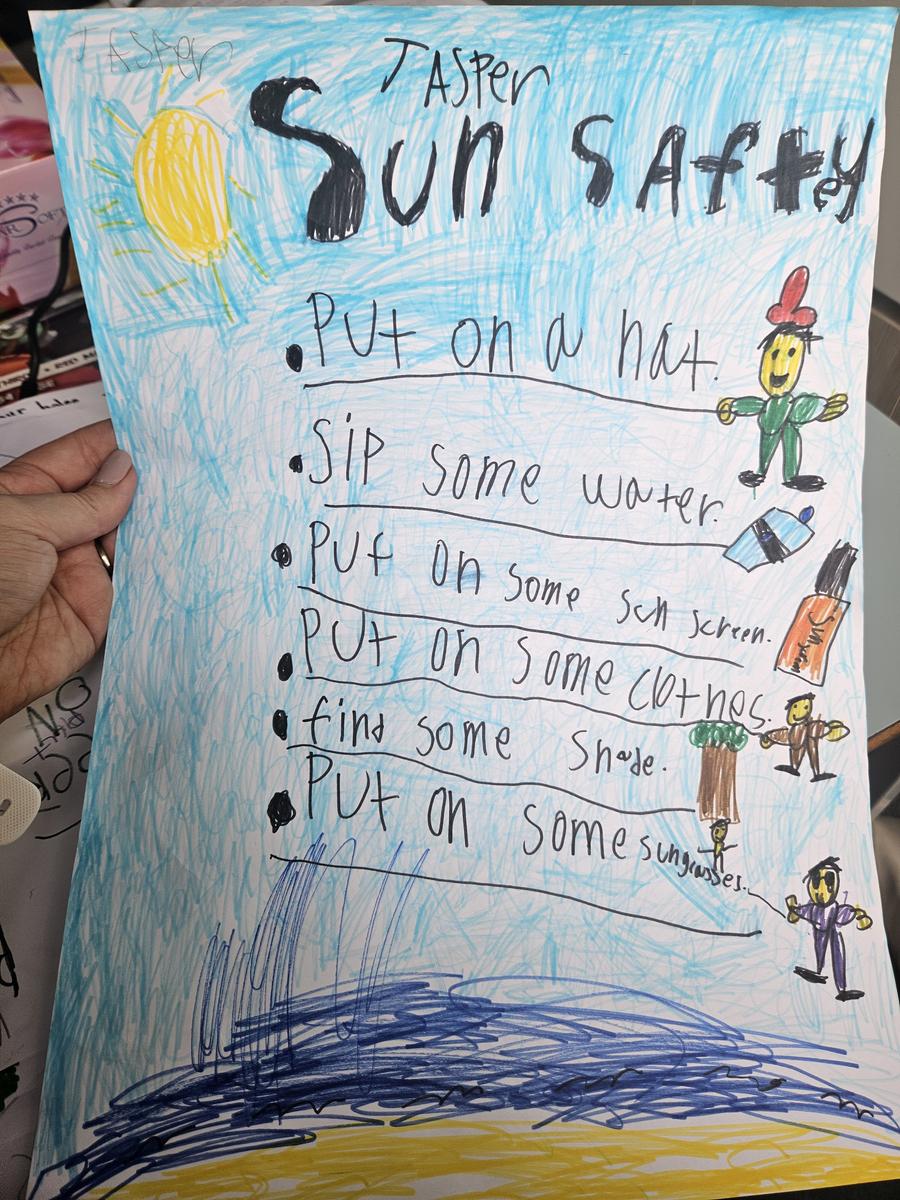 JASPer
JASPer
Sun SAftey
• Put on a hat.
• Sip some water.
• Put on some sun screen.
Sun
• Put on some clothes.
• find some Shade.
• Put on some sungrasses.
NO